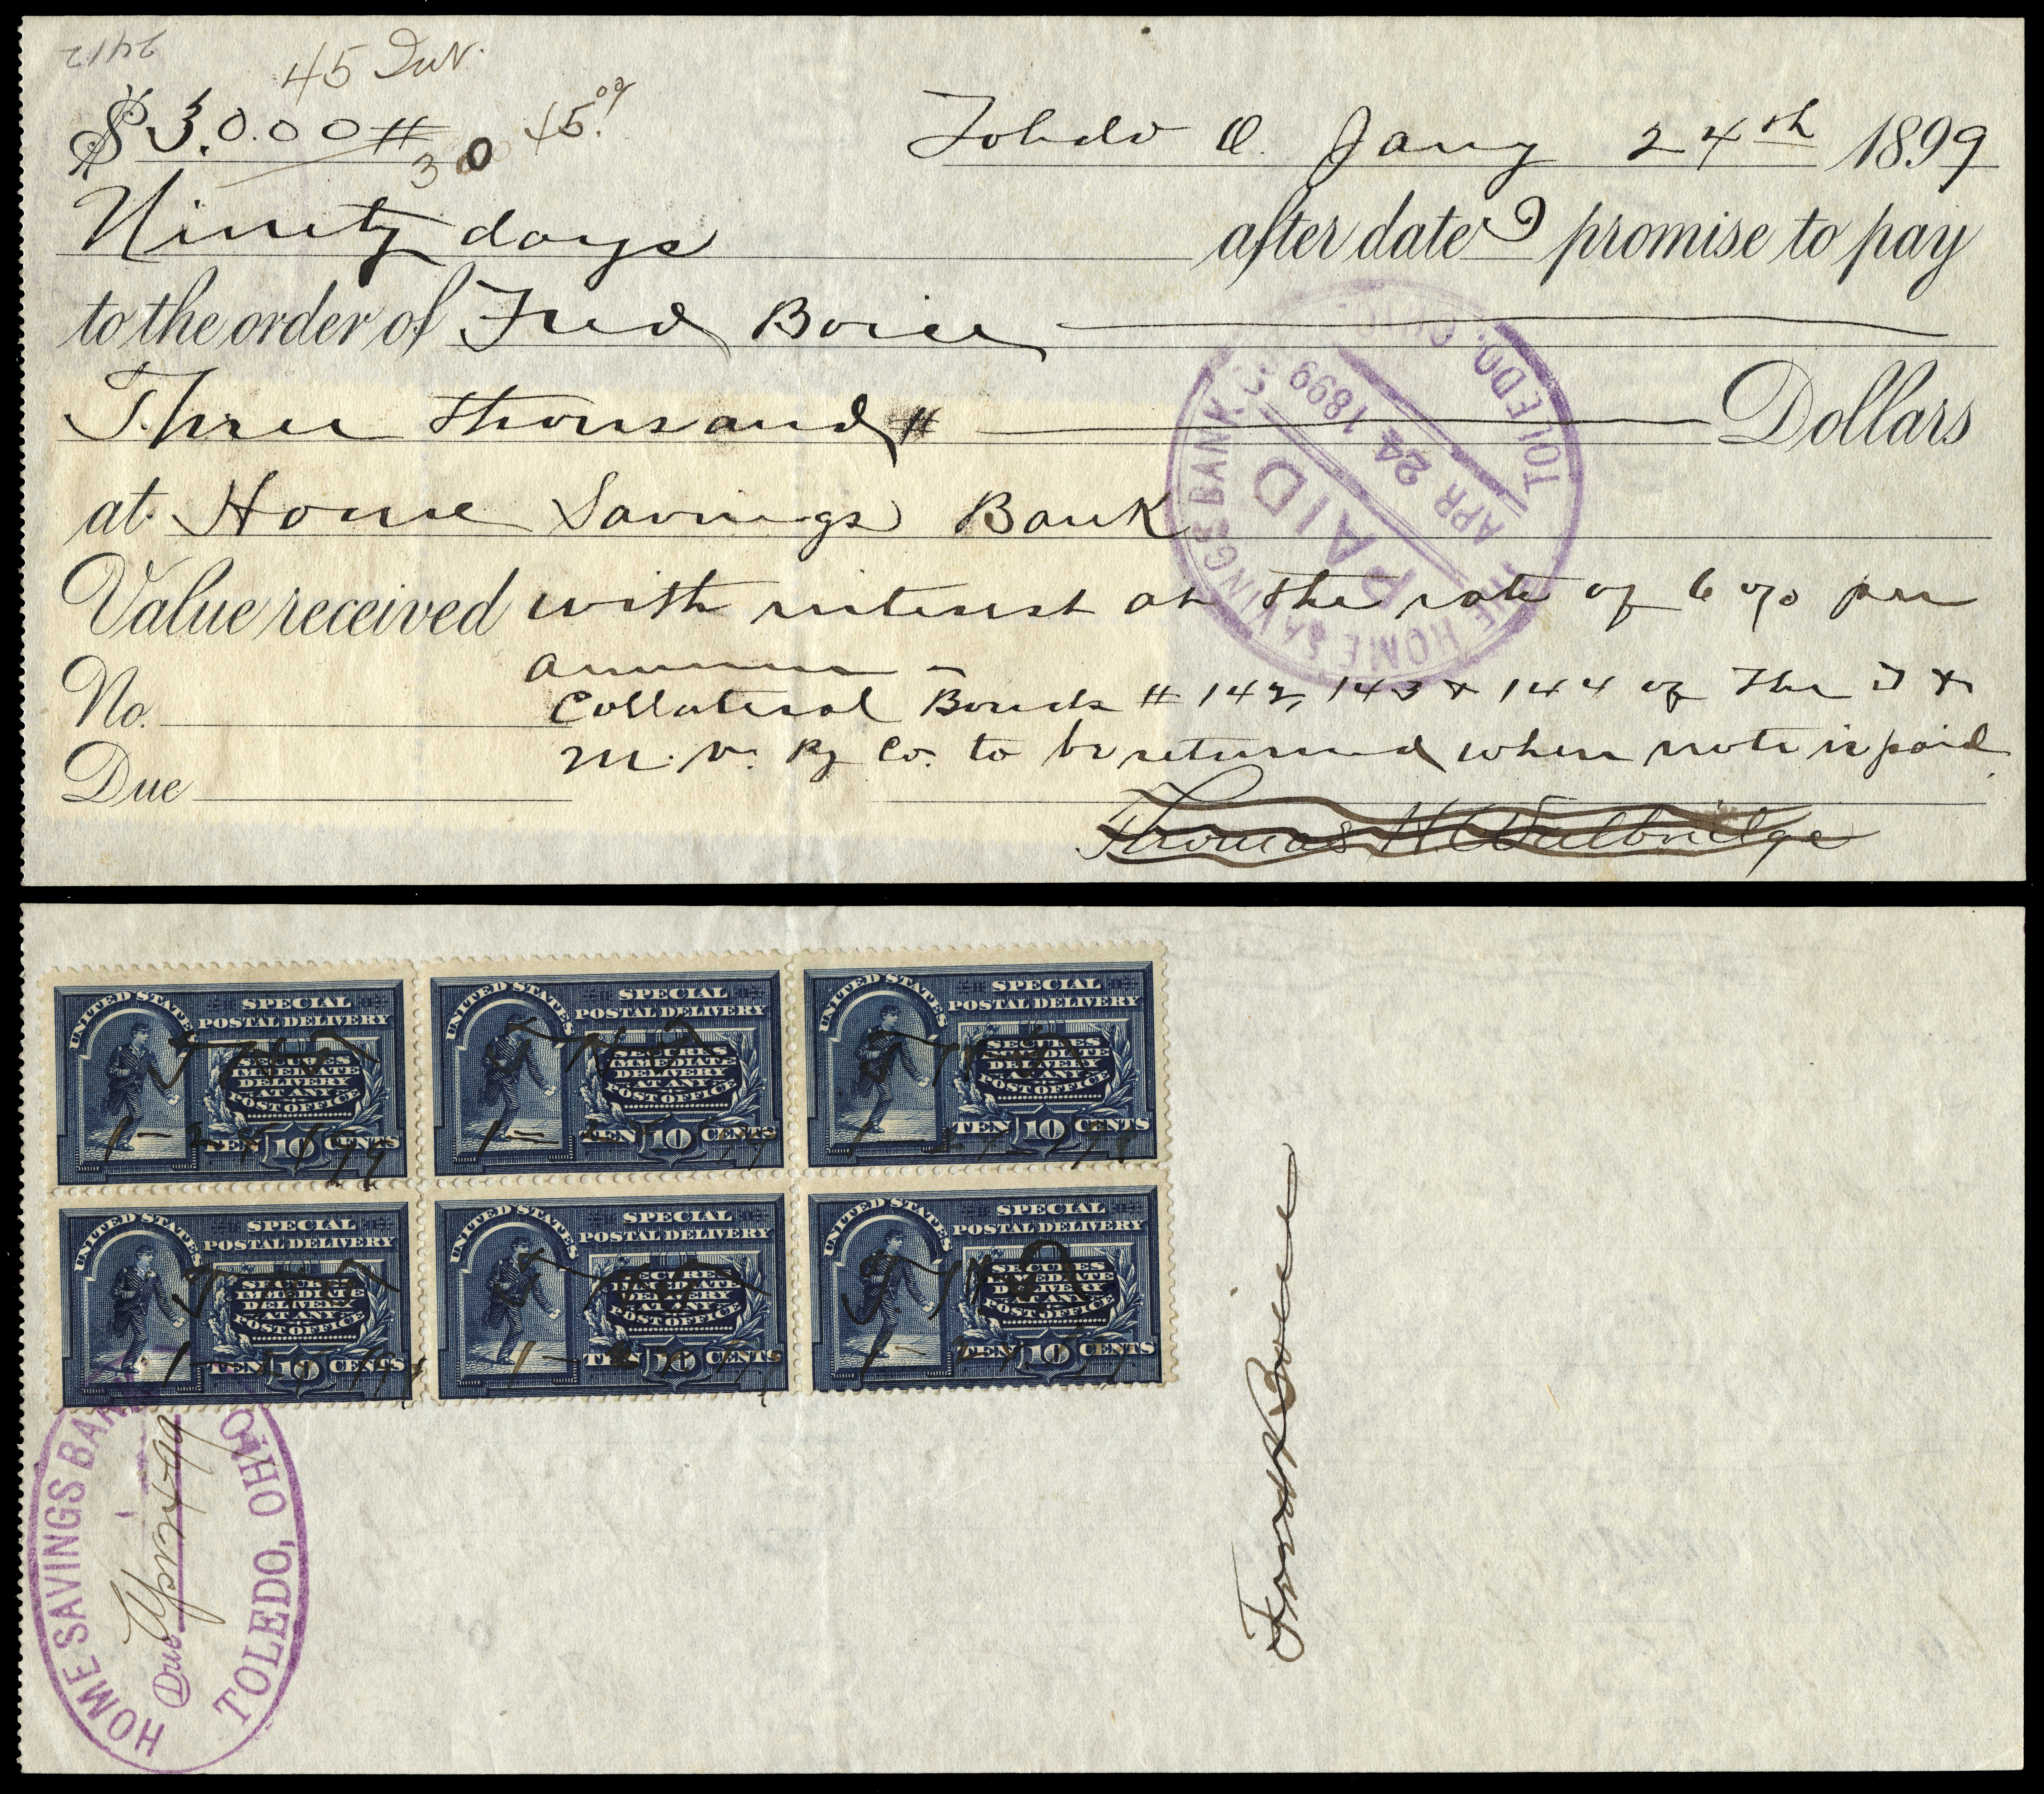 2412
45 Int.
$ 3.000 # 45.00
30
Toledo O. Jany 24th 1899
Ninety days after date I promise to pay
to the order of Fred Boice
Three thousand # Dollars
at Home Savings Bank
Value received with interest at the rate of 6% per
annum -
No.
Collateral Bonds # 142, 143 & 144 of The T &
M. V. Ry Co. to be returned when note is paid
Due
Thomas H Walbridge
THE HOME SAVINGS BANK CO.
PAID
APR 24 1899
TOLEDO, OHIO.
UNITED STATES
SPECIAL
POSTAL DELIVERY
SECURES
IMMEDIATE
DELIVERY
AT ANY
POST OFFICE
TEN 10 CENTS
T H W
1-24-99
UNITED STATES
SPECIAL
POSTAL DELIVERY
SECURES
IMMEDIATE
DELIVERY
AT ANY
POST OFFICE
TEN 10 CENTS
T H W
1-24-99
UNITED STATES
SPECIAL
POSTAL DELIVERY
SECURES
IMMEDIATE
DELIVERY
AT ANY
POST OFFICE
TEN 10 CENTS
T H W
UNITED STATES
SPECIAL
POSTAL DELIVERY
SECURES
IMMEDIATE
DELIVERY
AT ANY
POST OFFICE
TEN 10 CENTS
T H W
1-24-99
UNITED STATES
SPECIAL
POSTAL DELIVERY
SECURES
IMMEDIATE
DELIVERY
AT ANY
POST OFFICE
TEN 10 CENTS
T H W
1-24-99
UNITED STATES
SPECIAL
POSTAL DELIVERY
SECURES
IMMEDIATE
DELIVERY
AT ANY
POST OFFICE
TEN 10 CENTS
T. H W
1-24-99
HOME SAVINGS BANK
Due Apr 24/99
TOLEDO, OHIO
Fred Boice